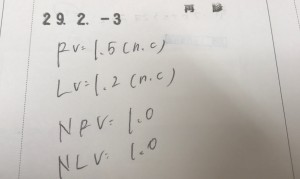 再診
29.2.-3
RV=1.5(n.c)
LV=1.2(n.c)
NRV=1.0
NLV=1.0